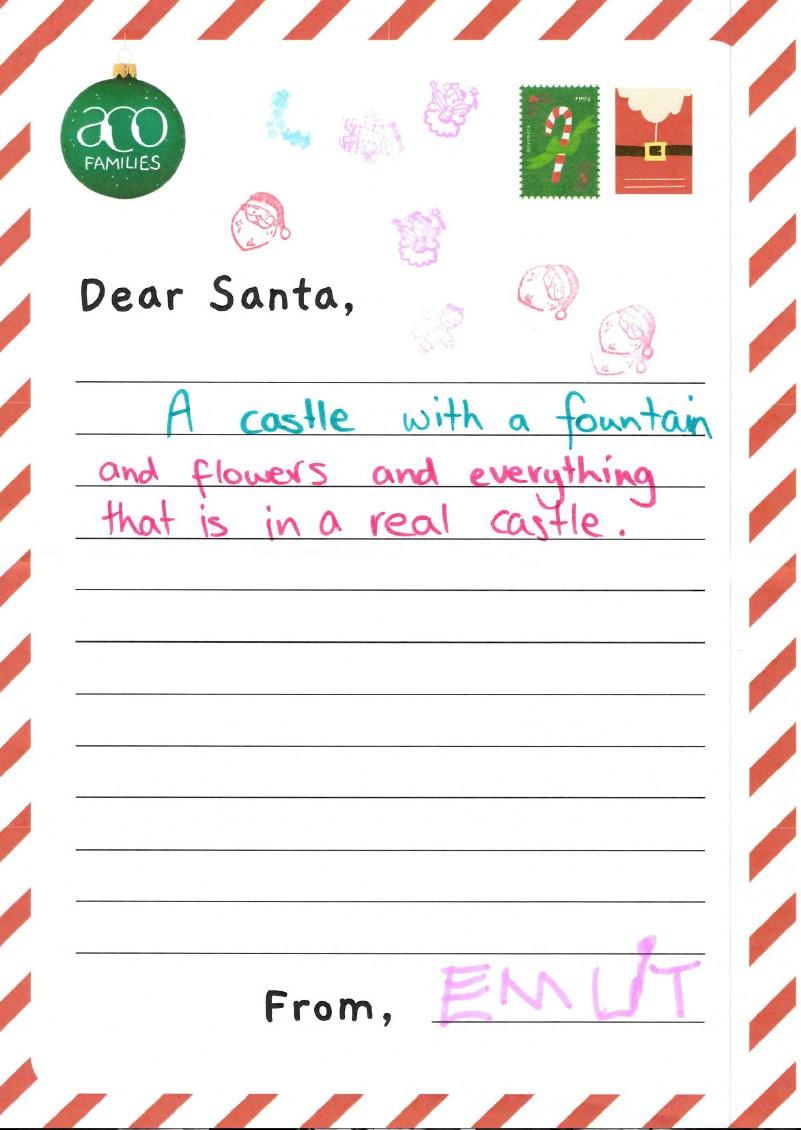 aco
FAMILIES
1995
Dear Santa,
A castle with a fountain
and flowers and everything
that is in a real castle.
From,